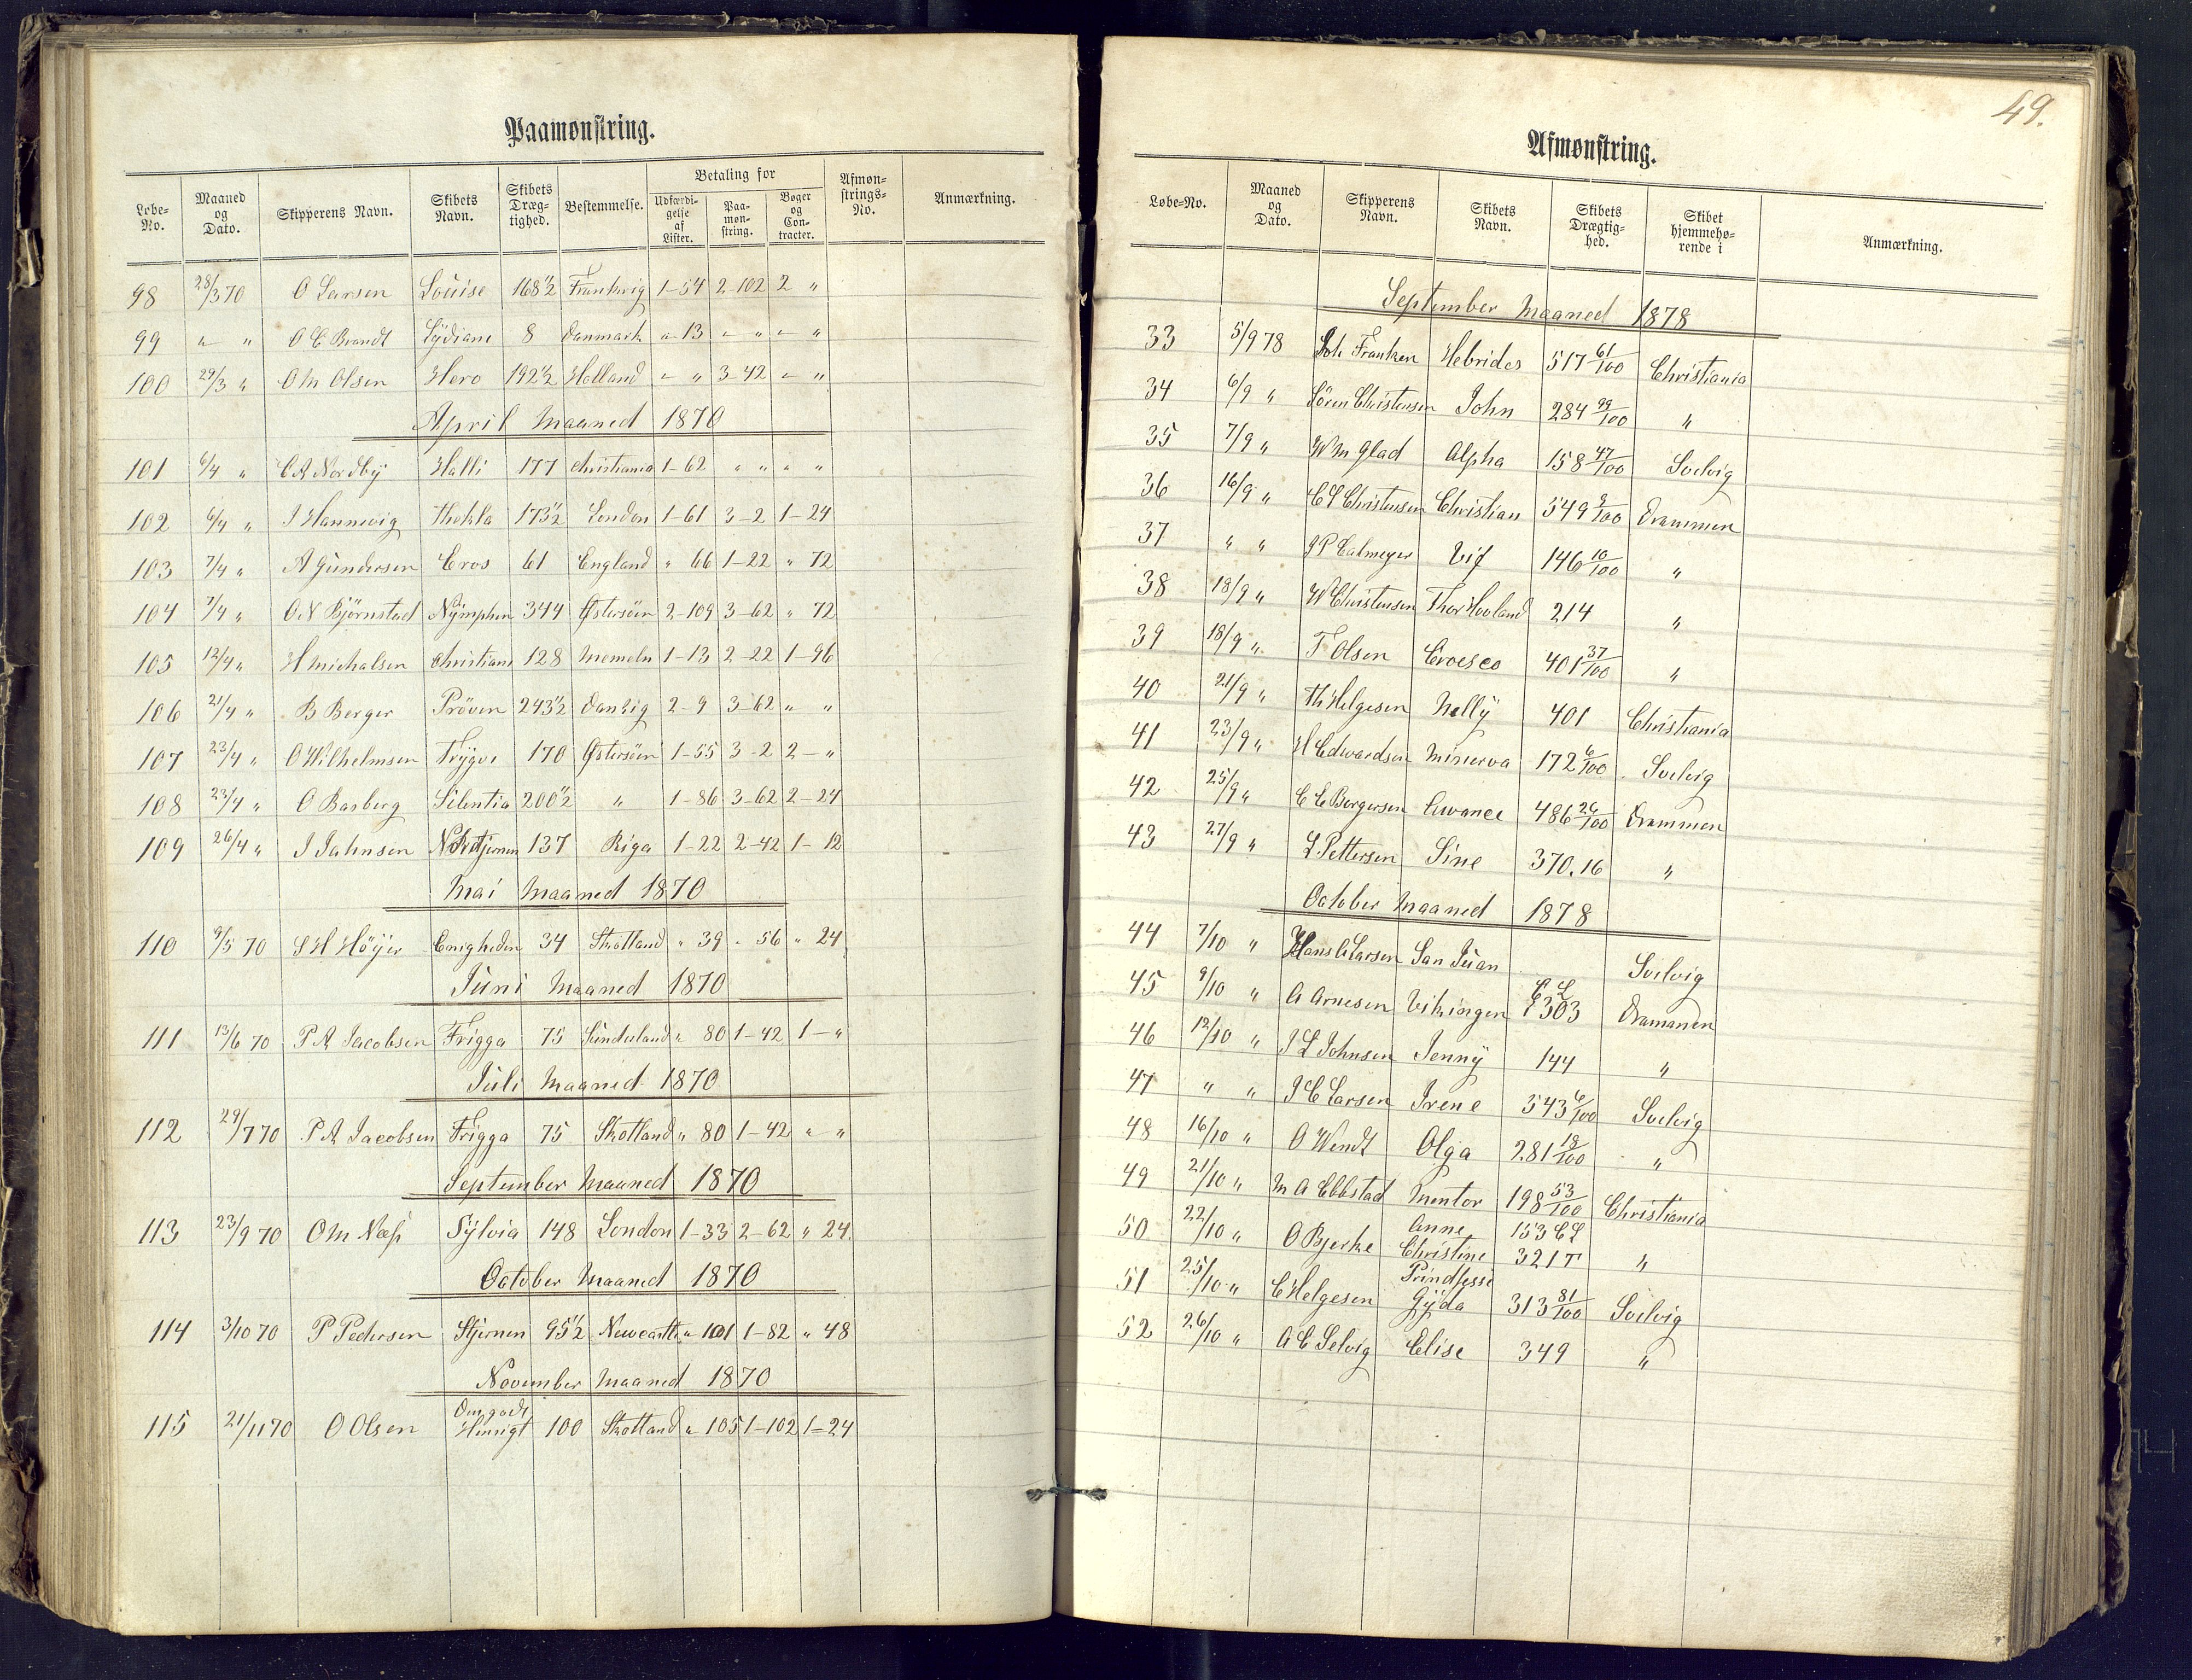 Paamønstring.
Løbe-No. Maaned og Dato. Skipperens Navn. Skibets Navn. Skibets Drægtighed. Bestemmelse. Betaling for Udfærdigelse af Lister. Paamønstring. Bøger og Contracter. Afmønstrings-No. Anmærkning.
98 28/3 70 O Larsen Louise 168½ Frankrig 1-54 2-102 2 "
99 " " O C Brandt Lydiane 8 Danmark " 13 " " " "
100 29/3 " O M Olsen Hero 192½ Holland " " 3-42 " "
April Maaned 1870
101 6/4 " C A Nordby Halli 177 Christiania 1-62 " " " "
102 6/4 " J Hannevig Thekla 173½ London 1-61 3-2 1-24
103 7/4 " A Gundersen Eros 61 England " 66 1-22 " 72
104 7/4 " O N Bjørnstad Nymphen 344 Østersøen 2-109 3-62 " 72
105 12/4 " H Michalsen Christiane 128 Memeln 1-13 2-22 1-96
106 21/4 " B Berger Prøven 243½ Danzig 2-9 3-62 " "
107 23/4 " O Wilhelmsen Trygve 170 Østersøen 1-55 3-2 2-"
108 23/4 " O Basberg Silentia 200½ " 1-86 3-62 2-24
109 26/4 " J Jahnsen Nordstjernen 137 Riga 1-22 2-42 1-12
Mai Maaned 1870
110 9/5 70 S H Höyer Enigheden 34 Skotland " 39 " 56 " 24
Juni Maaned 1870
111 13/6 70 P A Jacobsen Frigga 75 Sunderland " 80 1-42 1-"
Juli Maaned 1870
112 29/7 70 P A Jacobsen Frigga 75 Skotland " 80 1-42 " "
September Maaned 1870
113 23/9 70 O M Næss Sylvia 148 London 1-33 2-62 " 24
October Maaned 1870
114 3/10 70 P Pedersen Stjernen 95½ Newcastle " 101 1-82 " 48
November Maaned 1870
115 21/11 70 O Olsen Hensigt 100 Skotland " 105 1-102 1-24
49.
Afmønstring.
Løbe-No. Maaned og Dato. Skipperens Navn. Skibets Navn. Skibets Drægtighed. Skibet hjemmehørende i Anmærkning.
September Maaned 1878
33 5/9 78 Joh Franken Hebrides 517 61/100 Christiania
34 6/9 " Sören Christensen John 284 99/100 "
35 7/9 " W M Glad Alpha 158 47/100 Svelvig
36 16/9 " C S Christensen Christian 549 9/100 Drammen
37 " " J P Calmeyer Vif 146 10/100 "
38 18/9 " W Christensen Thor Hovland 214 "
39 18/9 " T Olsen 401 37/100 "
40 21/9 " Th Helgesen Nelly 401 Christiania
41 23/9 " H Edwardsen Minerva 172 6/100 Svelvig
42 25/9 " C C Borgersen Avance 486 26/100 Drammen
43 27/9 " L Pettersen Sine 370.16 "
October Maaned 1878
44 7/10 " Hans C Larsen San Juan Svelvig
45 9/10 " A Arnesen Vikingen CL 303 Drammen
46 12/10 " J L Johnsen Jenny 144 "
47 " " J C Larsen Irene 543 6/100 Svelvig
48 16/10 " O Wendt Olga 281 18/100 "
49 21/10 " M A Ebbstad Mentor 198 53/100 Christiania
50 22/10 " O Bjerke Anne Christine 153 CL 321 T "
51 25/10 " C Helgesen Prindsesse Gyda 313 81/100 Svelvig
52 26/10 " A C Selvig Elise 349 "